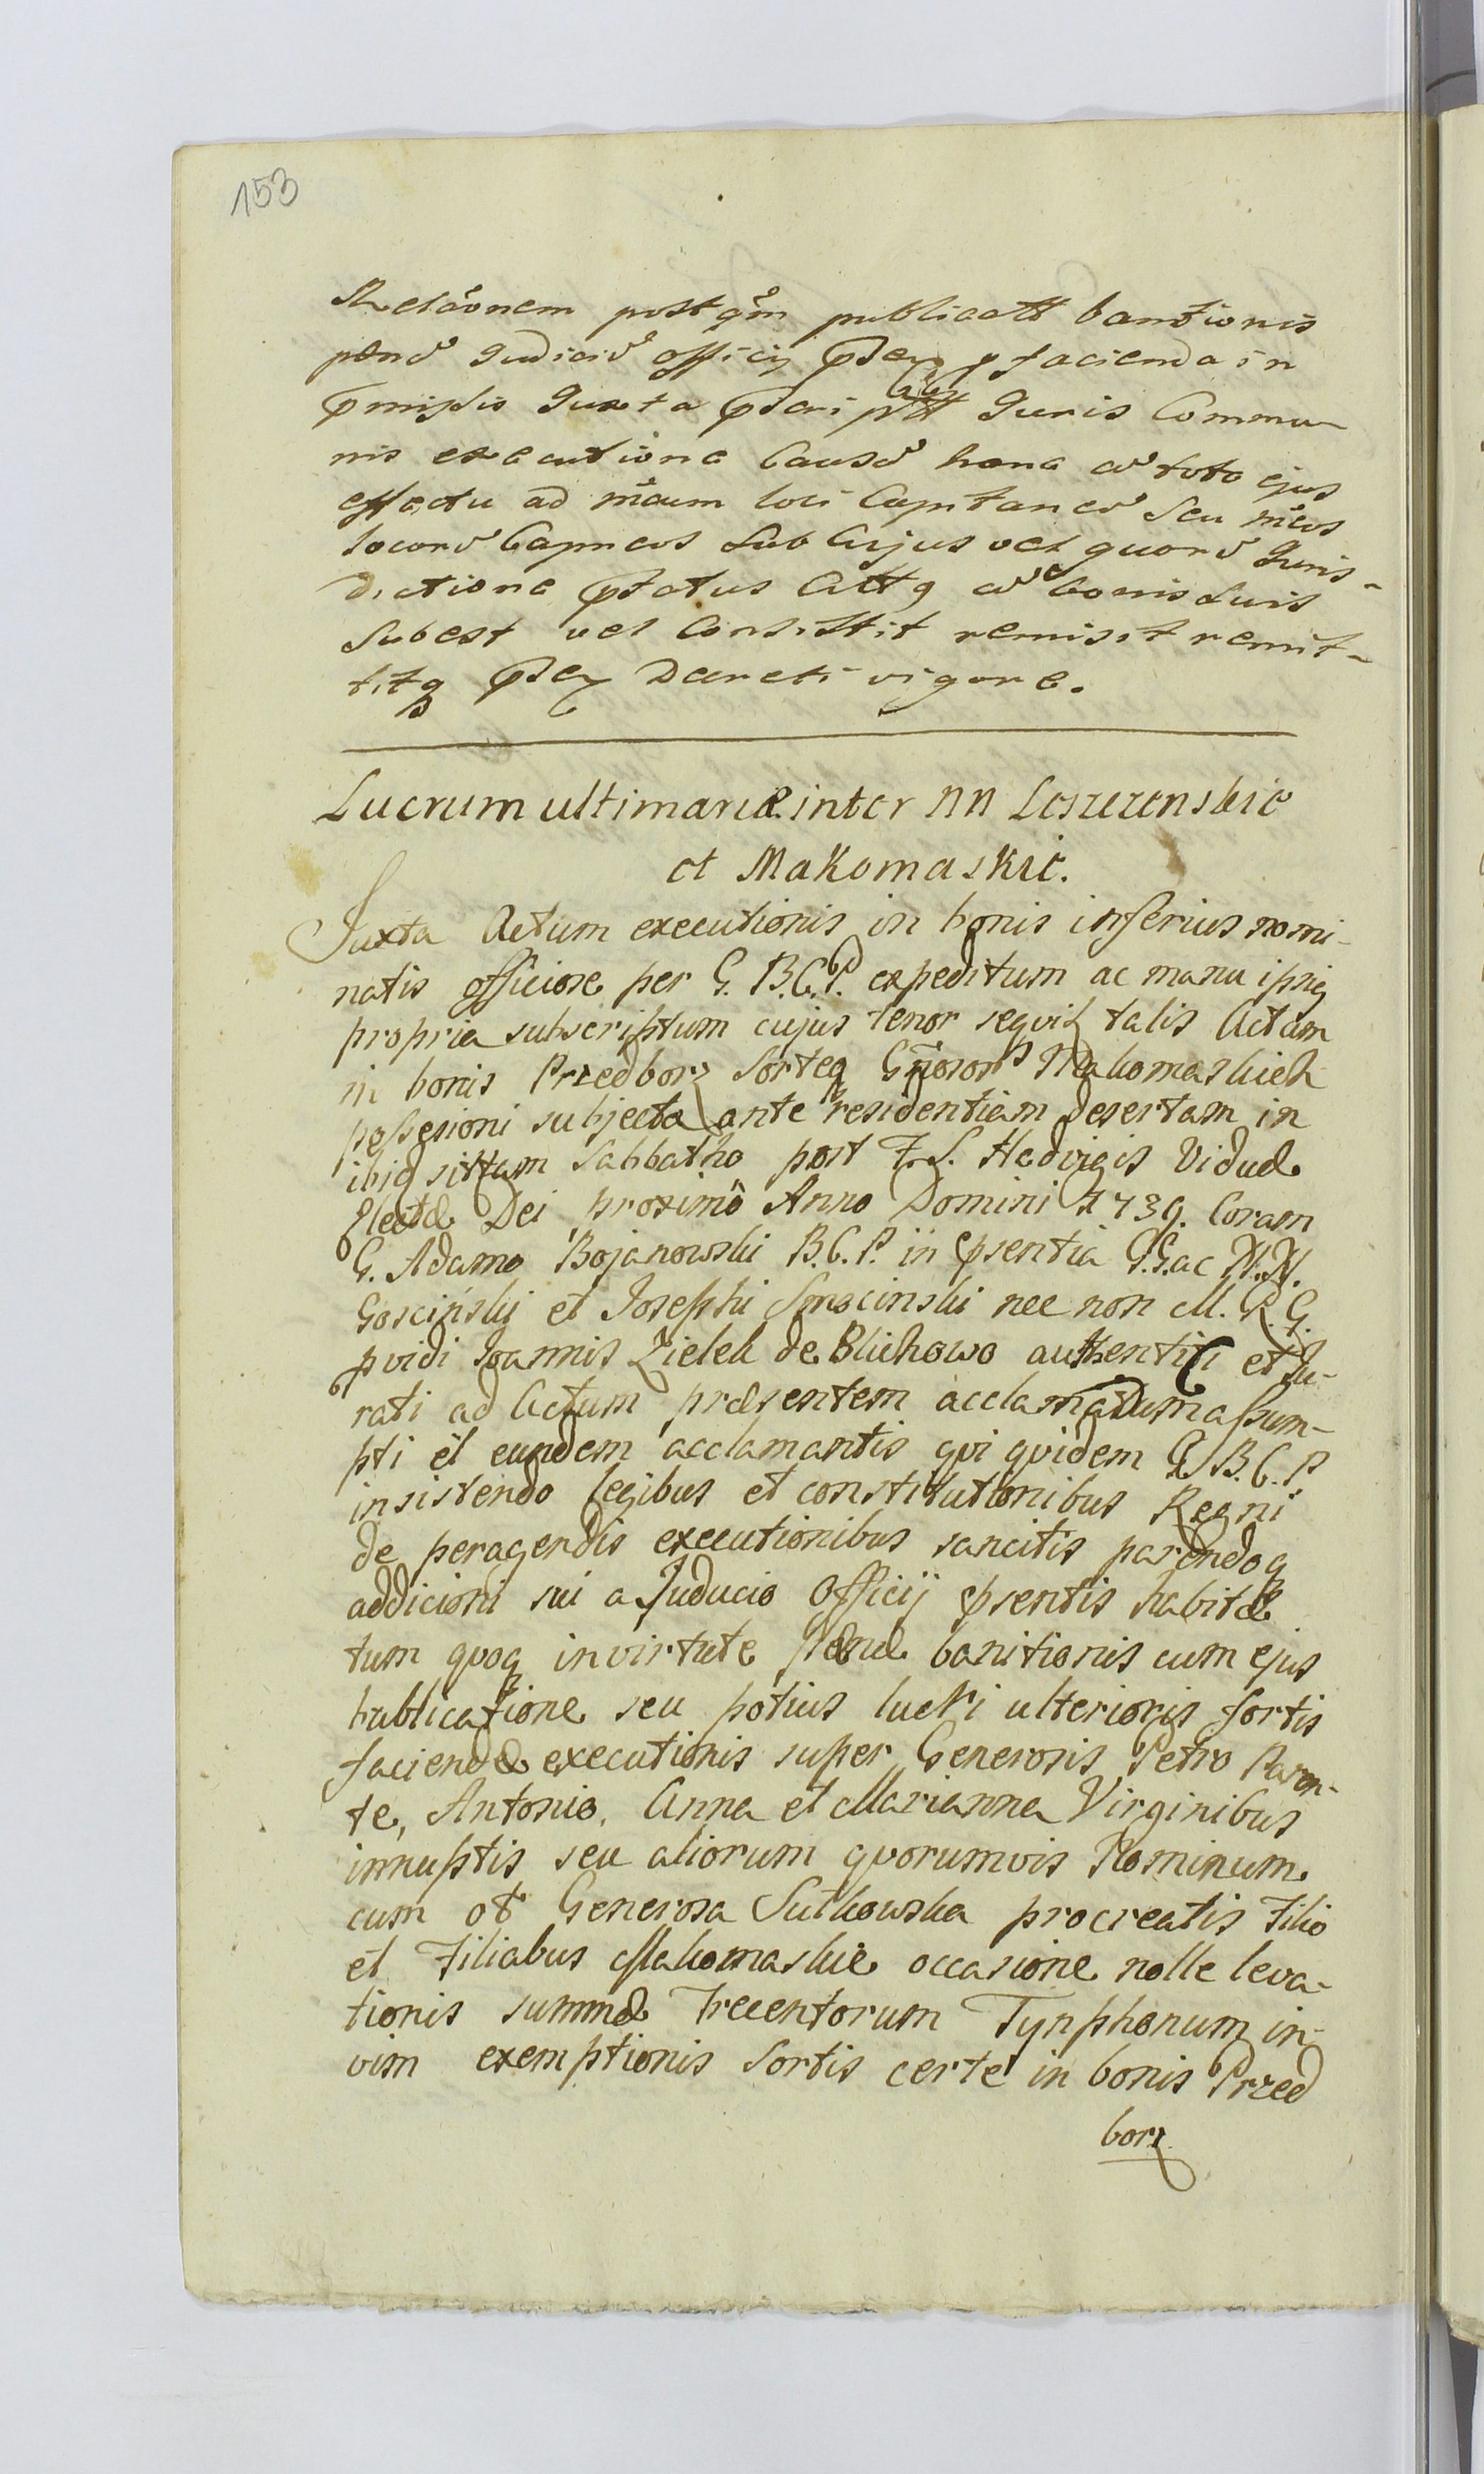 153
Relaōnem post qm publicatt banitionis
pœnæ Judicio officij pntis facienda in
præmissis Juxta Juris Commu-
nis executione Causã hanc cũ toto ejus
effectu ad loci Capitaneũ Seu
locorũ Capneos Sub Cujus vel quorũ Juris-
dictione Cittg cũ bonis Suis
Subest vel Consistit remisit remit-
titq Decreti vigore.
Lucrum ultimariæ inter NN Leszczenskie
et Makomaskie.
Juxta Actum executionis in bonis inferius nomi-
natis officiose per G. B.C.P. expeditum ac manu ipsig
propria subscriptum cujus tenor seqvit talis Actum
in bonis Przedborz Sorteq Gnosorũ Makomaskich
possesioni subjecta ante residentiam desertam in
ibid sittam Sabbatho post F. S. Hedvigis Viduæ
Electæ Dei proximô Anno Domini 1739. Coram
G. Adamo Bojanowski B.C.P. in psentia G.G. ac N.N.
Goscinskij et Josephi Smocinski nec non M. R. G.
pvidi Joannis Zielek de Blichowo authentici et Ju-
rati ad Actum præsentem acclamadum assum-
pti et eundem acclamantis qvi qvidem G. B.C.P.
insistendo legibus et constitutionibus Regni
de peragendis executionibus sancitis parendoq
addicioni sui a Juducio Officij psentis habitæ
tum qvoq in virtute pænæ banitionis cum ejus
publicatione seu potius lucri ulterioris sortis
faciendæ executionis super Generosis Petro Paren-
te, Antonio, Anna et Marianna Virginibus
innuptis seu aliorum qvorumvis Nominum
cum oł Generosa Sutkowska procreatis Filio
et Filiabus Makomaskie occasione nolle leva-
tionis summæ Trecentorum Tynphonum in
vim exemptionis Sortis certe in bonis Przed
borz